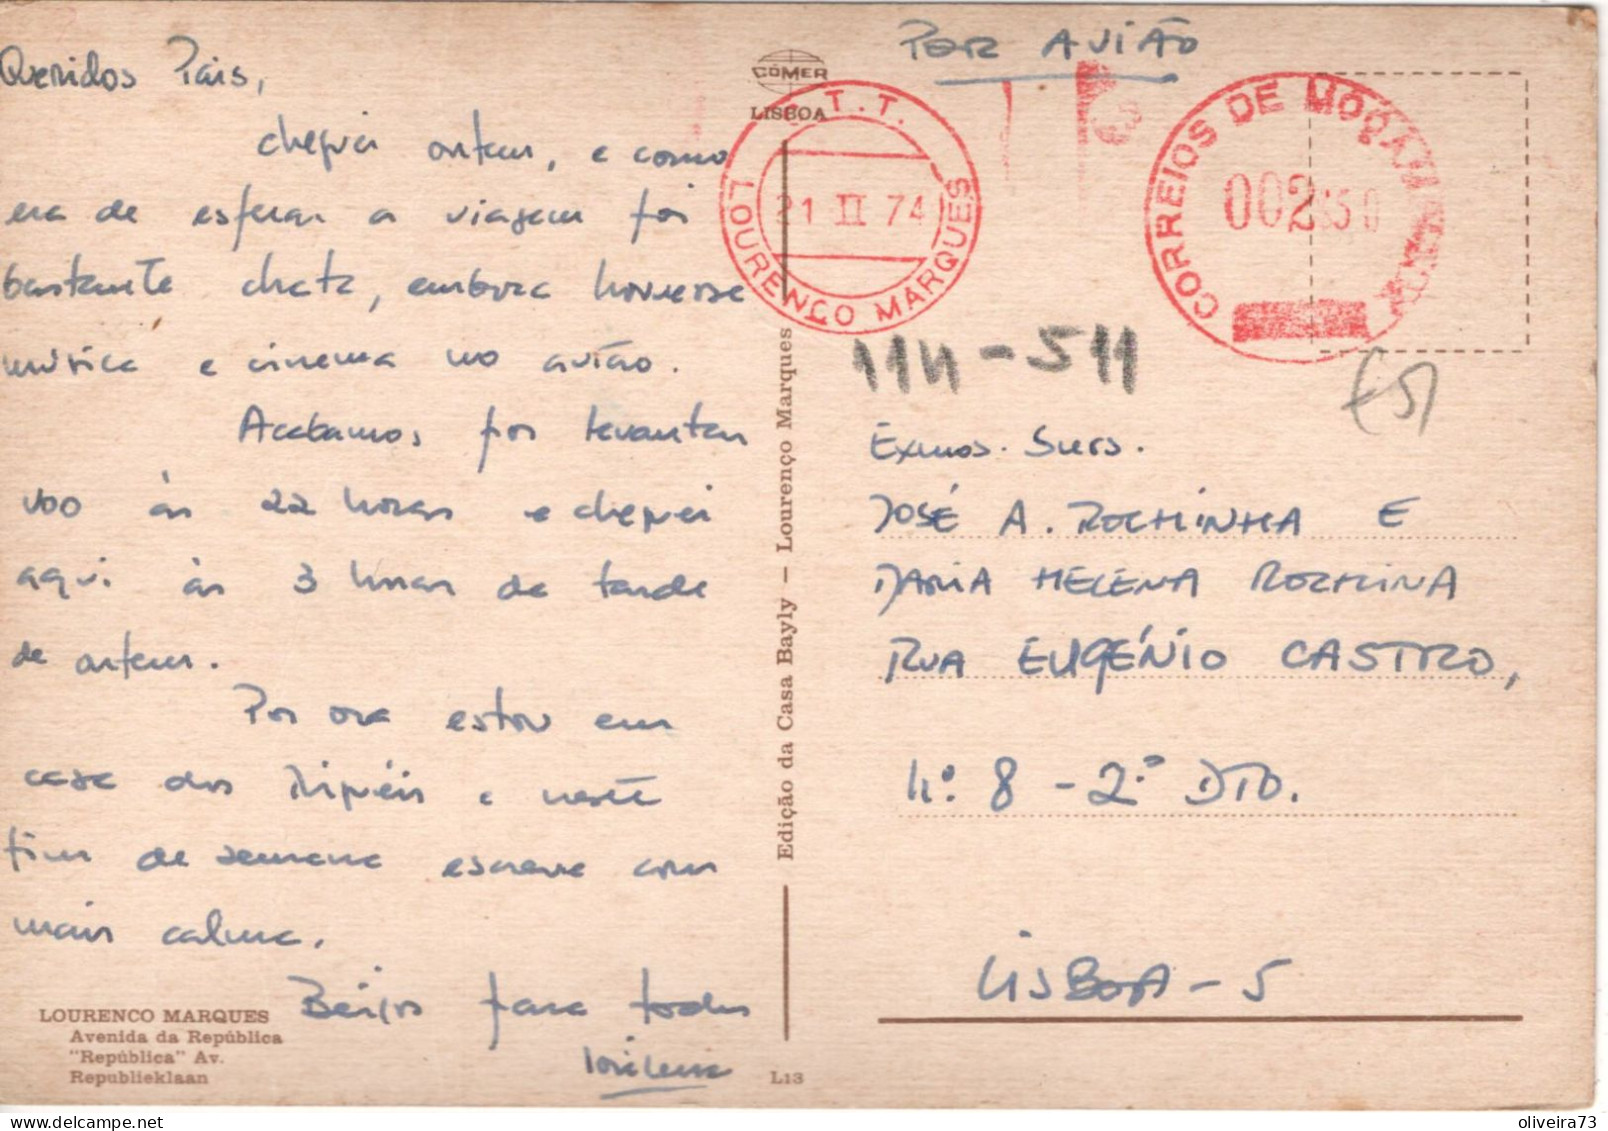 Queridos Pais,
cheguei ontem, e como
era de esperar a viagem foi
bastante chata, embora houvesse
música e cinema no avião.
Acabamos por levantar
voo às 22 horas e cheguei
aqui às 3 horas da tarde
de ontem.
Por ora estou em
casa dos e neste
fim de semana escrevo com
mais calma.
Beijos para todos
LOURENCO MARQUES
Avenida da República
"República" Av.
Republieklaan
COMER
LISBOA
Edição da Casa Bayly — Lourenço Marques
L13
POR AVIÃO
C.T.T.
21 II 74
LOURENÇO MARQUES
CORREIOS DE MOÇAMBIQUE
002$50
114-511
Exmos. Snrs.
JOSÉ A. ROCHINHA E
MARIA HELENA ROCHINA
RUA EUGÉNIO CASTRO,
N.º 8 - 2.º DTO.
LISBOA - 5
oliveira73